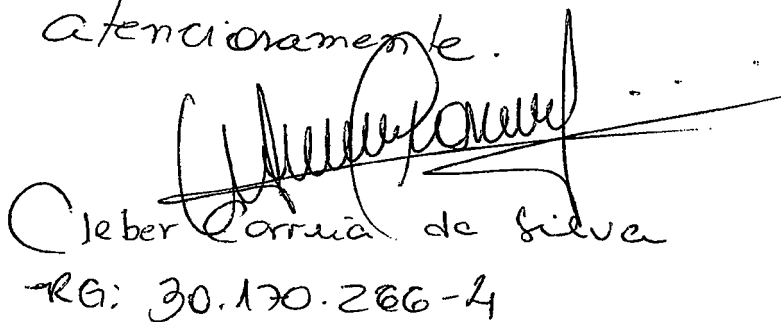 atenciosamente.
Cleber Correia da Silva
RG: 30.170.266-4